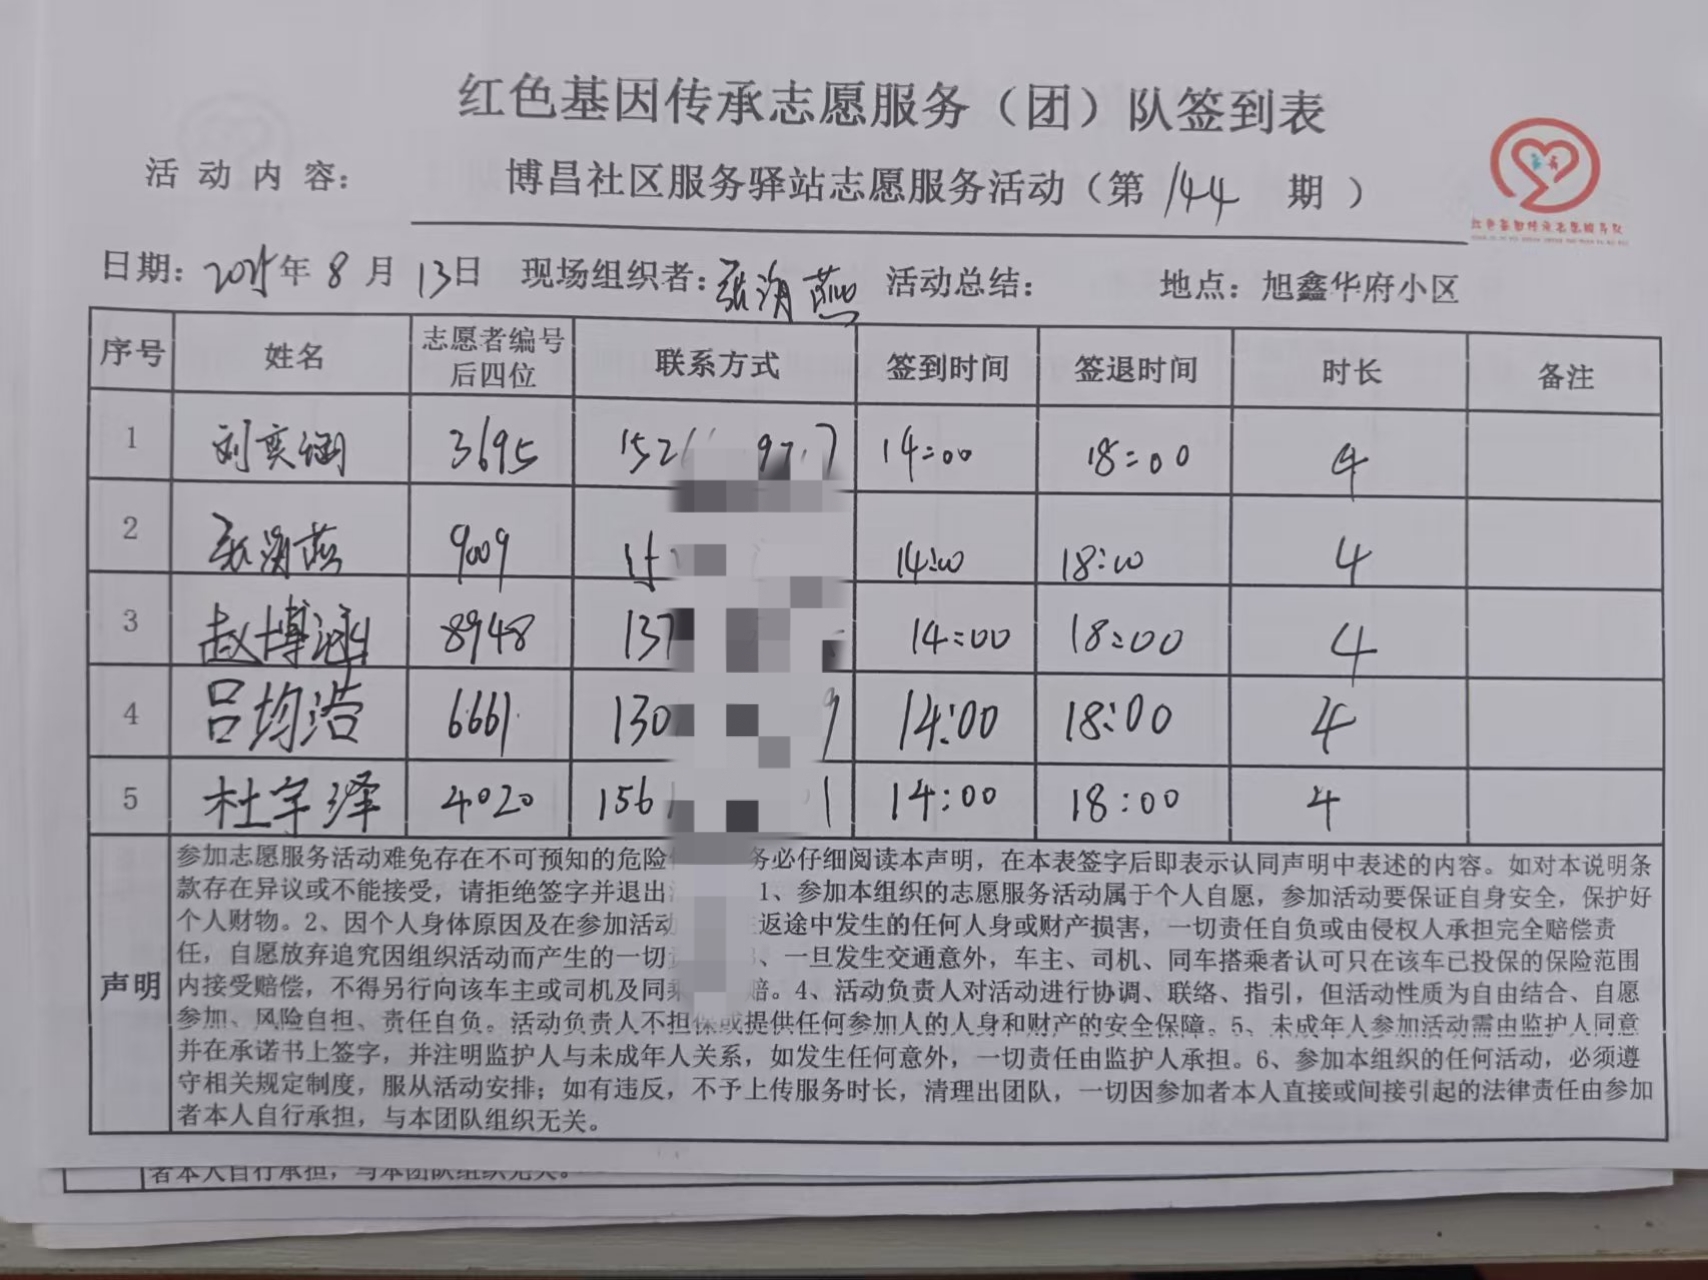 红色基因传承志愿服务（团）队签到表
活动内容： 博昌社区服务驿站志愿服务活动（第144期）
日期：2025年8月13日 现场组织者：张海燕 活动总结： 地点：旭鑫华府小区
序号 姓名 志愿者编号后四位 联系方式 签到时间 签退时间 时长 备注
1 刘奕涵 3695 152 14:00 18:00 4
2 张海燕 9009 14:00 18:00 4
3 赵博涵 8948 137 14:00 18:00 4
4 吕均浩 6661 130 9 14:00 18:00 4
5 杜宇泽 4020 156 1 14:00 18:00 4
声明
参加志愿服务活动难免存在不可预知的危险 务必仔细阅读本声明，在本表签字后即表示认同声明中表述的内容。如对本说明条
款存在异议或不能接受，请拒绝签字并退出 1、参加本组织的志愿服务活动属于个人自愿，参加活动要保证自身安全，保护好
个人财物。2、因个人身体原因及在参加活动 返途中发生的任何人身或财产损害，一切责任自负或由侵权人承担完全赔偿责
任，自愿放弃追究因组织活动而产生的一切 、一旦发生交通意外，车主、司机、同车搭乘者认可只在该车已投保的保险范围
内接受赔偿，不得另行向该车主或司机及同乘 赔。4、活动负责人对活动进行协调、联络、指引，但活动性质为自由结合、自愿
参加、风险自担、责任自负。活动负责人不担保或提供任何参加人的人身和财产的安全保障。5、未成年人参加活动需由监护人同意
并在承诺书上签字，并注明监护人与未成年人关系，如发生任何意外，一切责任由监护人承担。6、参加本组织的任何活动，必须遵
守相关规定制度，服从活动安排；如有违反，不予上传服务时长，清理出团队，一切因参加者本人直接或间接引起的法律责任由参加
者本人自行承担，与本团队组织无关。
者本人自行承担，与本团队组织无关。